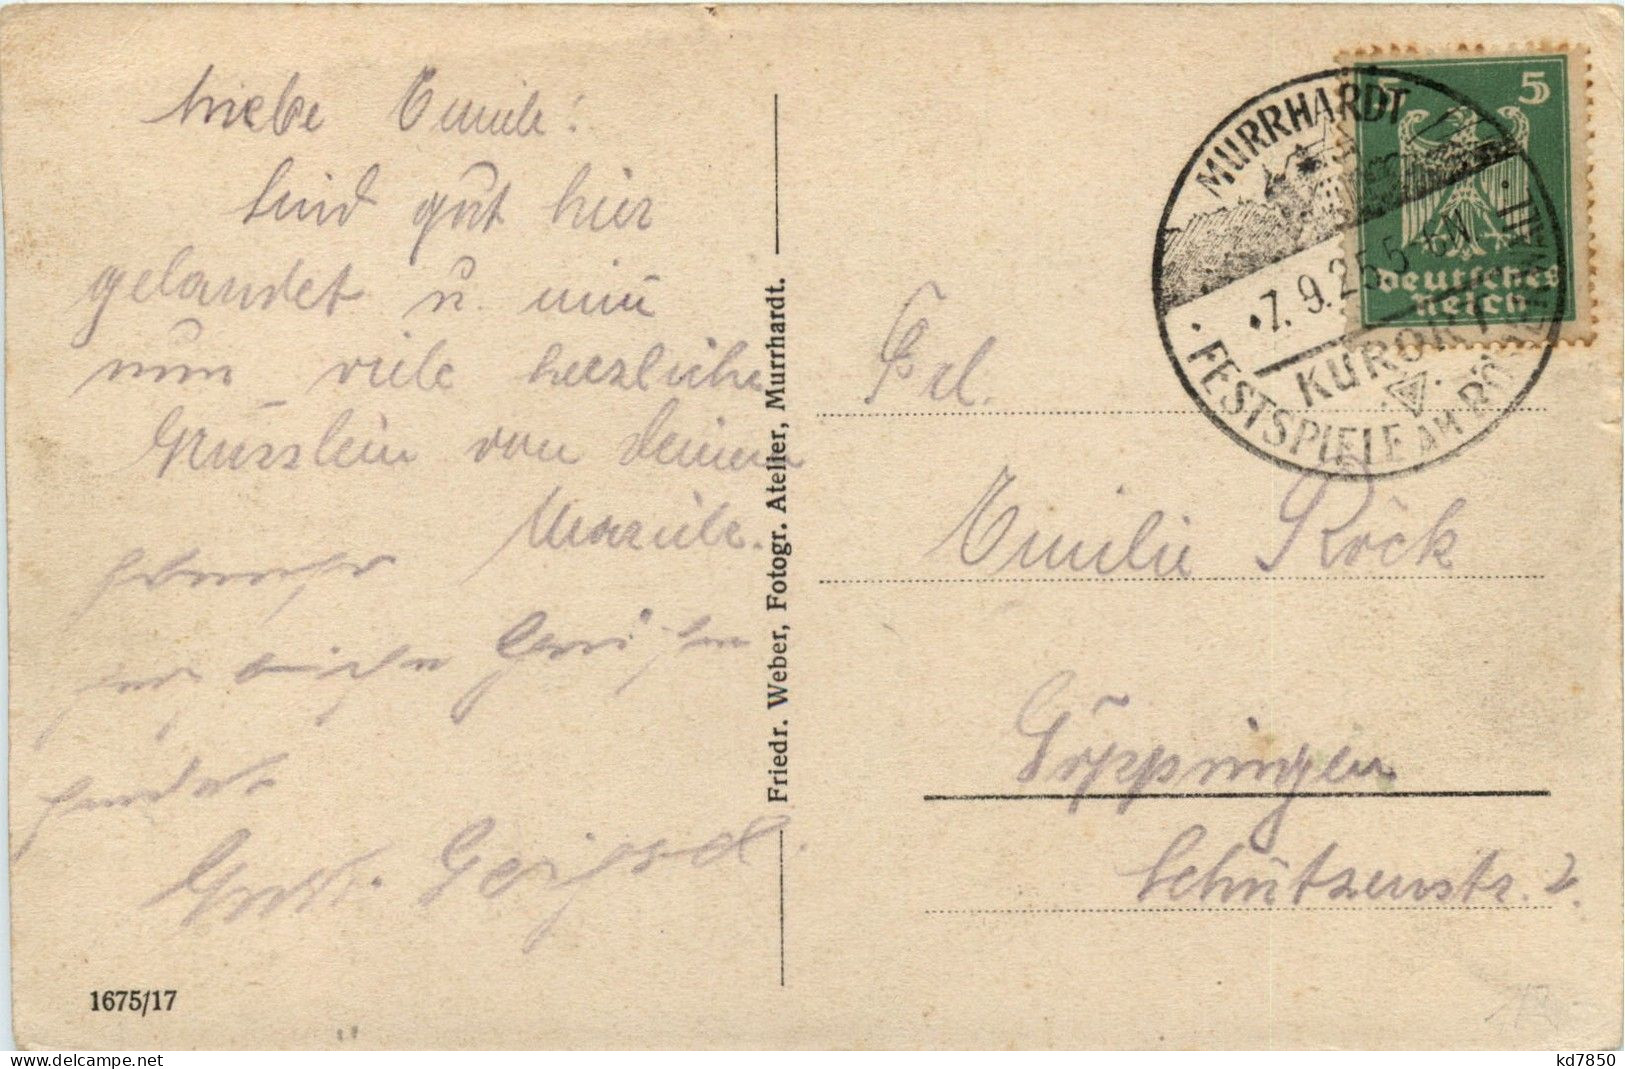 Liebe Emile!
sind gut hier
gelandet u. nun
nun viele herzliche
Grüsslein von deiner
Marile.
sendet
Friedr. Weber, Fotogr. Atelier, Murrhardt.
1675/17
MURRHARDT
7. 9. 25 5-6N
KURORT
FESTSPIELE AM RÖMERWALL
5 5
Deutsches
Reich
Frl.
Emilie Röck
Göppingen
Schützenstr. 2.
kd7850